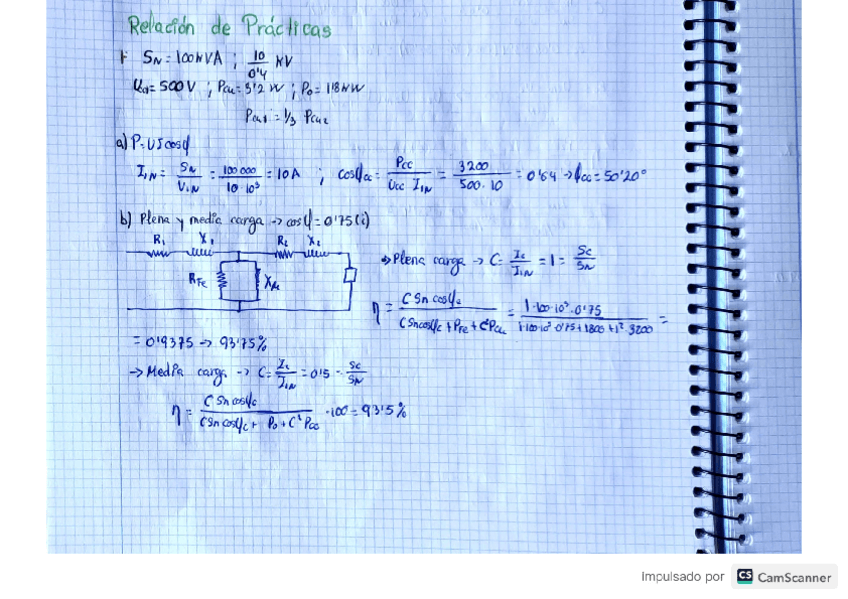 Relación de Prácticas
1- SN = 100 kVA ; 10/0'4 kV
Ucc = 500 V ; Pcu = 3'2 kW ; P0 = 1'8 kW
Pcu1 = 1/3 Pcu2
a) P = UI cosφ
I1N = SN/V1N = 100 000/10·10³ = 10 A ; cosφcc = Pcc/Ucc I1N = 3200/500·10 = 0'64 → φcc = 50'20°
b) Plena y media carga → cosφ = 0'75 (i)
R1 X1 R2 X2
RFe Xμ
→ Plena carga → C = I2/I2N = 1 = Sc/SN
η = C Sn cosφc / C Sn cosφc + PFe + C² Pcu = 1·100·10³·0'75 / 1·100·10³·0'75 + 1800 + 1²·3200 =
= 0'9375 → 93'75%
→ Media carga → C = I2/I2N = 0'5 = Sc/SN
η = C Sn cosφc / C Sn cosφc + P0 + C² Pcc · 100 = 93'5%
Impulsado por CS CamScanner